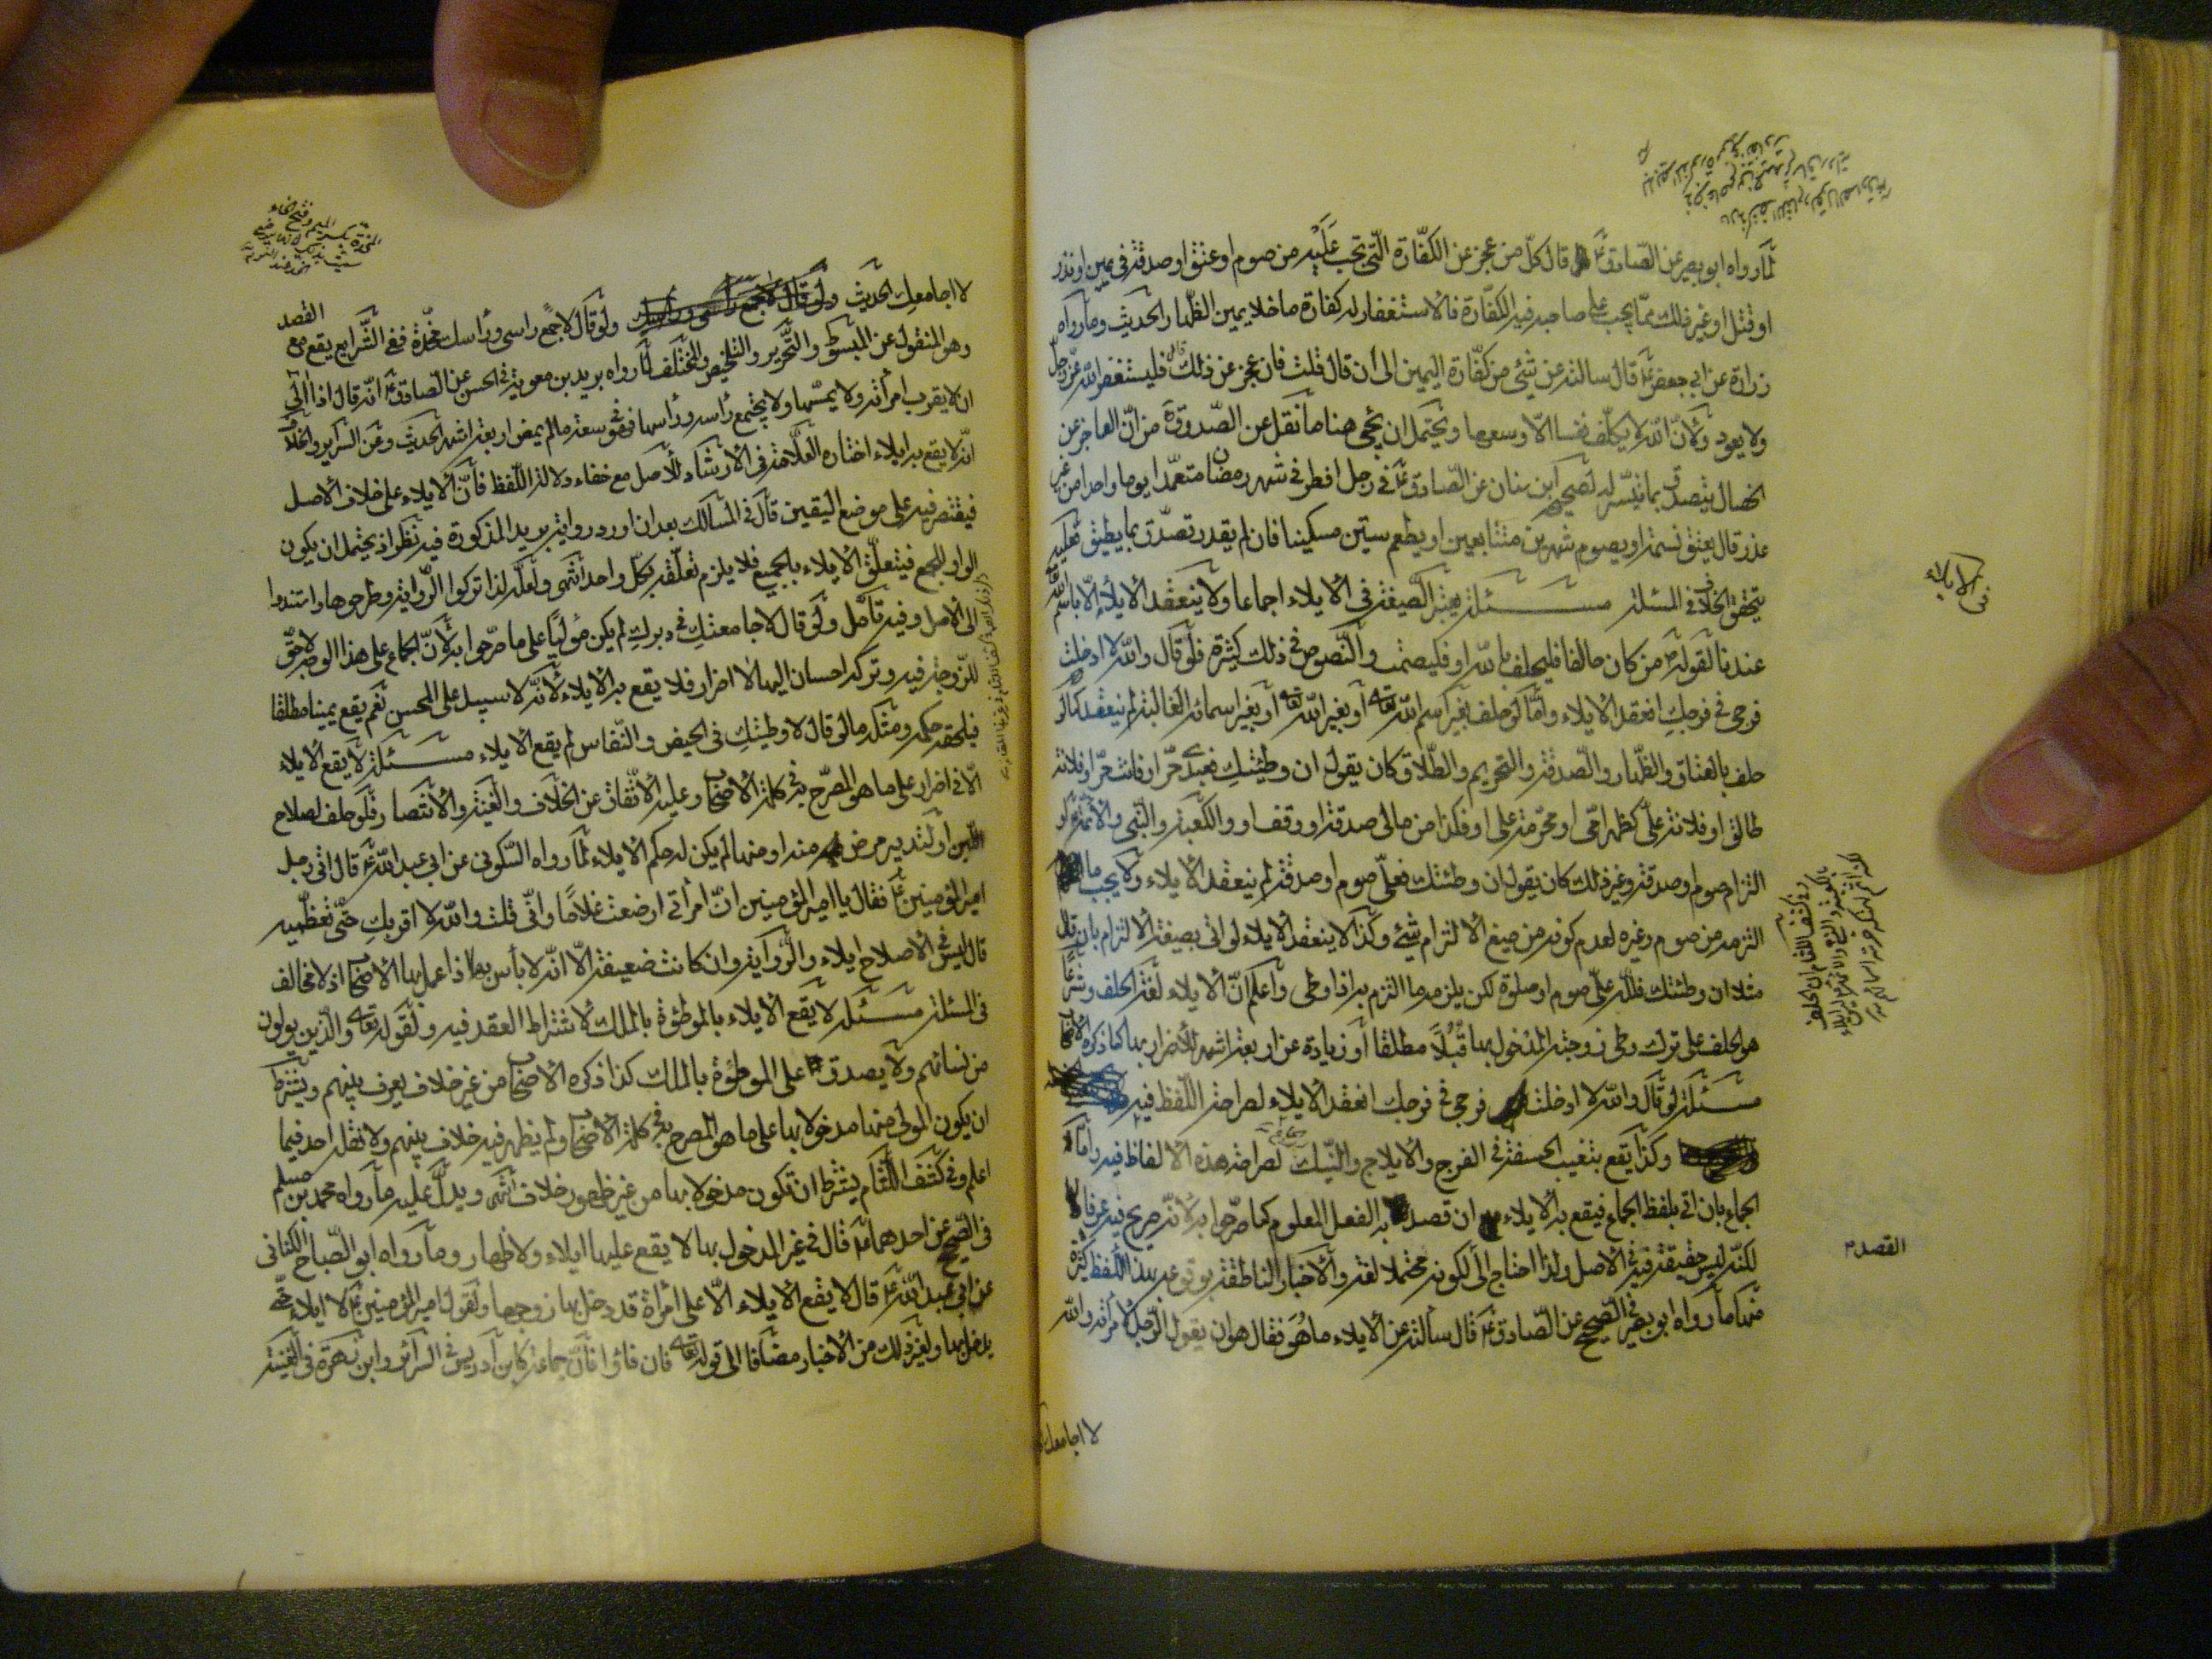 لما رواه ابو بصير عن الصادق ع قال كل من عجز عن الكفارة التى تجب عليه من صوم او عتق او صدقة فى يمين او نذر
او قتل او غير ذلك مما يجب على صاحبه فيه الكفارة فالاستغفار له كفارة ما خلا يمين الظهار الحديث وما رواه
زرارة عن ابى جعفر ع قال سالته عن شئى من كفارة اليمين الى ان قال قلت فان عجز عن ذلك قال فليستغفر الله عز وجل
ولا يعود ولان الله لا يكلف نفسا الا وسعها ويحتمل ان يجى هنا ما نقل عن الصدوق من ان العاجز عن
الخصال يتصدق بما تيسر له لصحيح ابن سنان عن الصادق ع فى رجل افطر فى شهر رمضان متعمدا يوما واحدا من غير
عذر قال يعتق نسمة او يصوم شهرين متتابعين او يطعم ستين مسكينا فان لم يقدر تصدق بما يطيق فعليه
يتحقق الخلاف فى المسئلة مسئلة يعتبر الصيغة فى الايلاء اجماعا ولا ينعقد الايلاء الا باسم الله
عندنا لقوله ص من كان حالفا فليحلف بالله او فليصمت والنصوص فى ذلك كثيرة فلو قال والله لا ادخلت
فرجى فى فرجك انعقد الايلاء واما لو حلف بغير اسم الله تعالى او بغير الله تعالى او بغير اسمائه الغالبة لم ينعقد كما لو
حلف بالعتاق والظهار والصدقة والتحريم والطلاق كان يقول ان وطيتك فعبدى حر او فانت حر او فلانة
طالق او فلانة على كظهر امى او محرمة على او فكذا من مالى صدقة او وقف او والكعبة والنبى والائمة ع او
التزام صوم او صدقة وغير ذلك كان يقول ان وطئتك فعلى صوم او صدقة لم ينعقد الايلاء ولا يجب ما
التزمه من صوم وغيره لعدم كونه من صيغ الالتزام شئى وكذا لا ينعقد الايلاء لو اتى بصيغة الالتزام بان قال
مثلا ان وطئتك فلله على صوم او صلوة لكن يلزمه ما التزم به اذا وطى واعلم ان الايلاء لغة الحلف وشرعا
هو الحلف على ترك وطى زوجته المدخول بها قبلا مطلقا او زيادة عن اربعة اشهر للاضرار بها كما ذكره الاصحاب
مسئلة لو قال والله لا ادخلت فرجى فى فرجك انعقد الايلاء لصراحة اللفظ فيه
وكذا يقع بتغيب الحشفة فى الفرج والايلاج والنيك لصراحة هذه الالفاظ فيه واما
الجماع بان اتى بلفظ الجماع فيقع به الايلاء ان قصد به الفعل المعلوم كما صرحوا به لانه صريح فيه عرفا
لكنه ليس حقيقة فيه فى الاصل ولذا احتاج الى لكونه محتملا لغة والاخبار الناطقة بوقوعه بهذا اللفظ كثيرة
منها ما رواه ابو بصير فى الصحيح عن الصادق ع قال سالته عن الايلاء ما هو فقال هو ان يقول الرجل لامرأته والله
لا اجامعك
فى الايلاء
القصد
لا اجامعك الحديث ولو قال لا جمع راسى وراسك مخدة ففى الشرايع يقع مع
القصد
وهو المنقول عن المبسوط والتحرير والتلخيص والمختلف لما رواه بريد بن معوية فى الحسن عن الصادق ع انه قال اذا الى
ان لا يقرب امرأته ولا يمسها ولا يجتمع رأسه ورأسها فهو فى سعة ما لم يمض اربعة اشهر الحديث وعن السراير والخلاف
انه لا يقع به ايلاء اختاره العلامة فى الارشاد للاصل مع خفاء دلالة اللفظ فان الايلاء على خلاف الاصل
فيقتصر فيه على موضع اليقين قال فى المسالك بعد ان اورد رواية بريد المذكورة فيه نظر اذ يحتمل ان يكون
الواو للجمع فيتعلق الايلاء بالجميع فلا يلزم تعلقه بكل واحد انتهى ولعله لذا تركوا الرواية وطرحوها واستندوا
الى الاصل وفيه تامل ولو قال لا جامعتك فى دبرك لم يكن موليا على ما صرحوا به لان الجماع على هذا الوجه لا حق
للزوجة فيه وتركه احسان اليها لا اضرار فلا يقع به الايلاء لانه لا سبيل على المحسن نعم يقع يمينا مطلقا
فيلحقه حكمه ومثله ما لو قال لا وطيتك فى الحيض والنفاس لم يقع الايلاء مسئلة لا يقع الايلاء
الا فى اضرار على ما هو المصرح به فى كلمة الاصحاب وعليه الاتفاق عن الخلاف والغنية والانتصار فلو حلف لصلاح
اللبن او لتدبير مرض منه او منها لم يكن له حكم الايلاء لما رواه السكونى عن ابى عبد الله ع قال اتى رجل
امير المؤمنين ع فقال يا امير المؤمنين ان امرأتى ارضعت غلاما وانى قلت والله لا اقربك حتى تفطميه
قال ليس فى الاصلاح ايلاء والرواية وان كانت ضعيفة الا انه لا بأس بها اذا عمل بها الاصحاب اذ لا مخالف
فى المسئلة مسئلة لا يقع الايلاء بالموطؤة بالملك لاشتراط العقد فيه ولقوله تعالى والذين يولون
من نسائهم ولا يصدق على الموطؤة بالملك كذا ذكره الاصحاب من غير خلاف يعرف بينهم ويشترط
ان يكون المولى منها مدخولا بها على ما هو المصرح به فى كلمة الاصحاب ولم يظهر فيه خلاف بينهم ولا نقله احد فيما
اعلم وفى كشف اللثام يشترط ان تكون مدخولا بها من غير ظهور خلاف انتهى ويدل عليه ما رواه محمد بن مسلم
فى الصحيح عن احدهما ع قال فى غير المدخول بها لا يقع عليها ايلاء ولا ظهار وما رواه ابو الصباح الكنانى
عن ابى عبد الله ع قال لا يقع الايلاء الا على امرأة قد دخل بها زوجها ولقول امير المؤمنين ع لا ايلاء حتى
يدخل بها ولغير ذلك من الاخبار مضافا الى قوله تعالى فان فاؤا فان جماعة كابن ادريس فى السرائر وابن زهرة فى الغنية